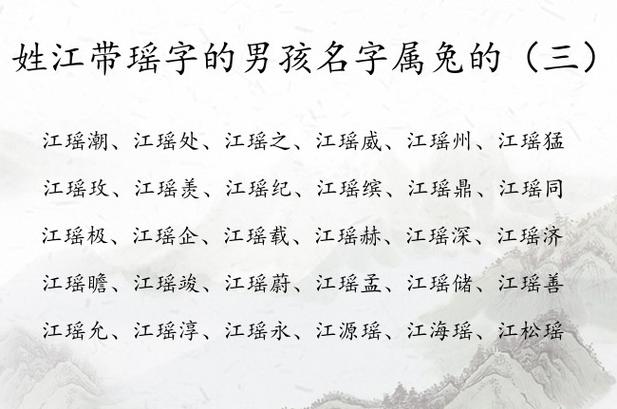 姓江带瑶字的男孩名字属兔的（三）
江瑶潮、江瑶处、江瑶之、江瑶威、江瑶州、江瑶猛
江瑶玫、江瑶羡、江瑶纪、江瑶缤、江瑶鼎、江瑶同
江瑶极、江瑶企、江瑶载、江瑶赫、江瑶深、江瑶济
江瑶瞻、江瑶竣、江瑶蔚、江瑶孟、江瑶储、江瑶善
江瑶允、江瑶淳、江瑶永、江源瑶、江海瑶、江松瑶